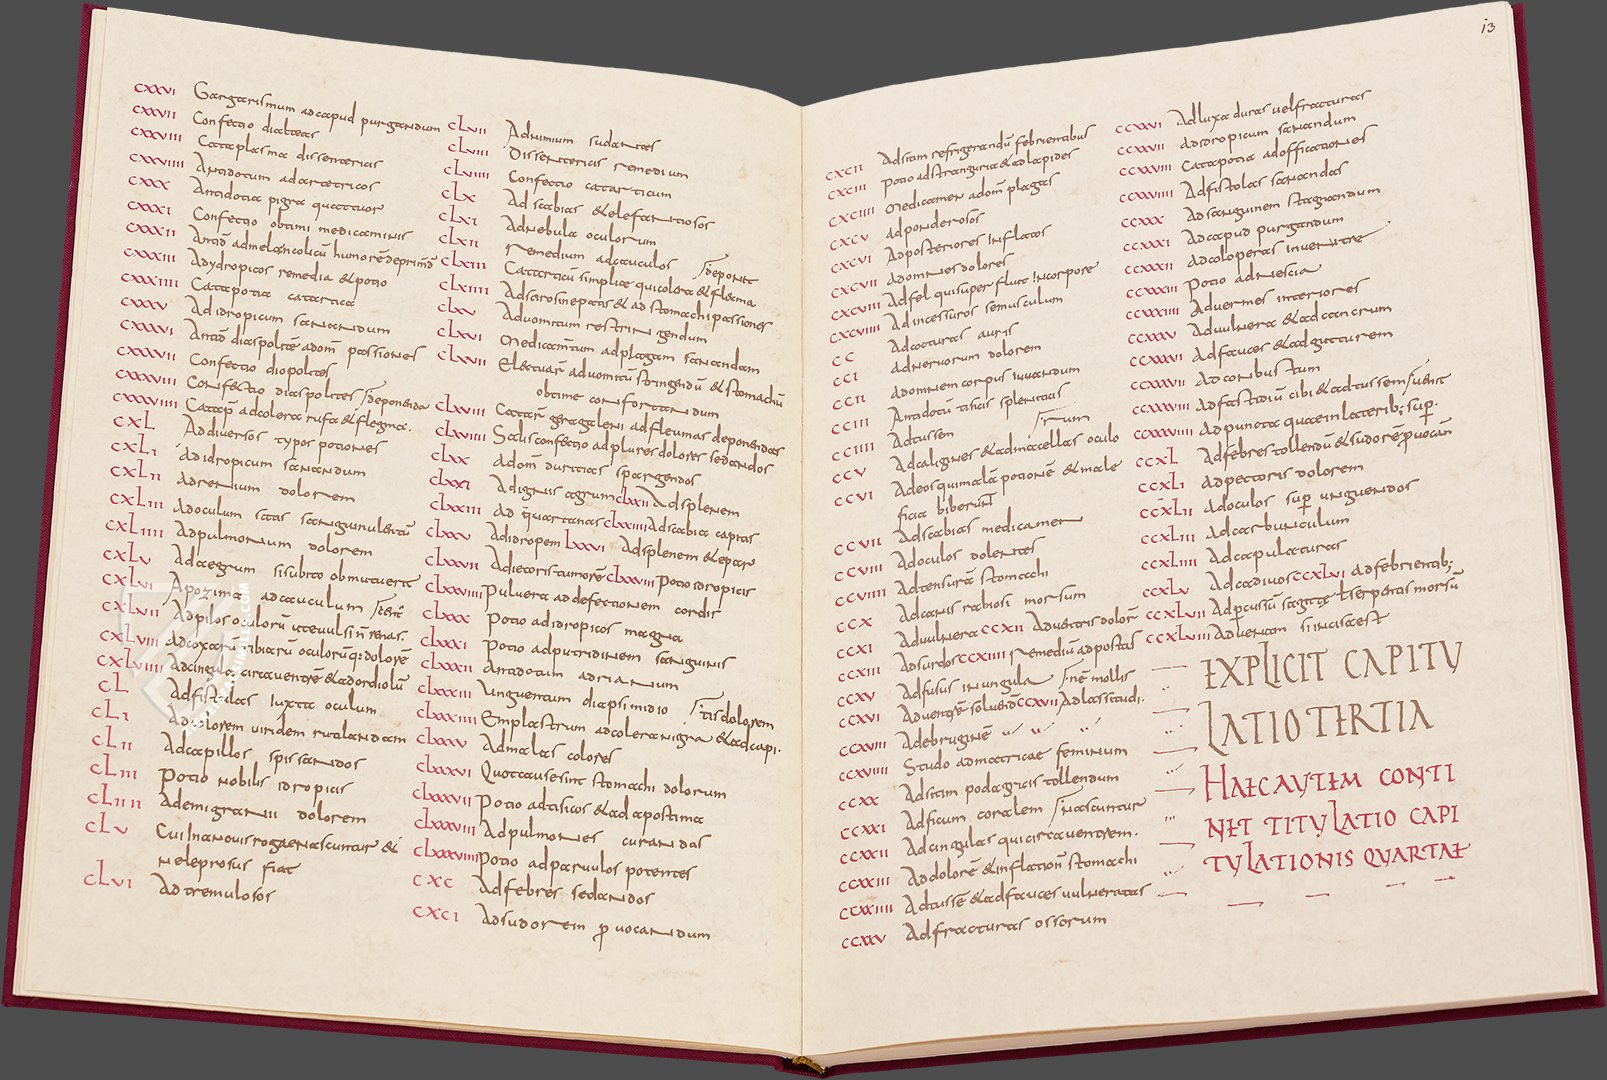 CXXVI Gargarismum ad caput purgandum
CXXVII Confectio dialteas
CXXVIII Cataplasma dissentericis
CXXVIIII Antidotum ad artetricos
CXXX Antidota pigra quattuor
CXXXI Confectio obtimi medicaminis
CXXXII Antid̄ ad melancolicū humorē deprimd̄
CXXXIII Adydropicos remedia & potio
CXXXIIII Catapotia catartica
CXXXV Adidropicum sanandum
CXXXVI Antid̄ diaspoltē adom̄ passiones
CXXXVII Confectio diopoltes
CXXXVIII Confectio diaspoltes deponenda
CXXXVIIII Catap̄ ad colera rufa & flegma.
CXL Ad diversos typos potiones
CXLI Adidropicum sanandum
CXLII Adrenium dolorem
CXLIII Adoculum satis sanguinulentū
CXLIIII Adpulmonum dolorem
CXLV Adaegrum si subito obmutuerit
CXLVI Apozima ad cauculum
CXLVII Adpilos oculorū ut evulsi n̄ renas.
CXLVIII Adcoxarū tibiarū oculorūq: dolorē
CXLVIIII Adcingula circa ventrē & ad cordiolū
CL Adfistulas iuxta oculum
CLI Adcolorem viridem rutilandam
CLII Adcapillos spissandos
CLIII Potio nobilis idropicis
CLIIII Ademigranii dolorem
CLV Cui in anovis rogae nascuntur &
ne leprosus fiat
CLVI Adtremulosos
CLVII Adnimium sudantes
CLVIII Dissentericis remedium
CLVIIII Confectio catarticum
CLX Ad scabias & elefantiosos
CLXI Adnebula oculorum
CLXII Remedium ad cauculos deponit
CLXIII Catarticū simplice qui colera & flecma
CLXIIII Adsarosin epatis & ad stomachi passiones
CLXV Advomitum restringendum
CLXVI Medicam̄tum ad plagam sanandam
CLXVII Electuar̄ ad vomitū stringendū & stomachū
obtime confortandum
CLXVIII Catar̄ gragaleni ad fleumas deponendas
CLXVIIII Salis confectio ad plures dolores sedandos
CLXX Adom̄ duritias spargendos
CLXXI Adignis agrum CLXXII Adsplenem
CLXXIII Ad quartanas CLXXIIII Adscabia capitis
CLXXV Adidropem CLXXVI Adsplenem & epar
CLXXVII Adiecoris tumorē CLXXVIII Potio idropicis
CLXXVIIII Pulvera ad defectionem cordis
CLXXX Potio adidropicos magna
CLXXXI Potio adputridinem sanguinis
CLXXXII Antidotum adrianum
CLXXXIII Unguentum diapsimidio tis dolorem
CLXXXIIII Emplastrum ad colera nigra & ad capi.
CLXXXV Admalas colores
CLXXXVI Quot causae sint stomachi dolorum
CLXXXVII Potio adtisicos & ad apostima
CLXXXVIII Adpulmones curandas
CLXXXVIIII Potio adparvulos potentes
CXC Adfebres sedandos
CXCI Adsudorem provocandum
i3
CXCII Adsitim refrigerandū febrientibus
CXCIII Potio ad stranguria & ad lapides
CXCIIII Medicamen adom̄ plagas
CXCV Adponderosos
CXCVI Adposteriores inflatos
CXCVII Adomnes dolores
CXCVIII Adfel qui super fluit in corpore
CXCVIIII Ad incessuros semusculum
CC Adcaturas auris
CCI Adnervorum dolorem
CCII Adomnem corpus iuvandum
CCIII Antidotū tihcis spleniticis
CCIIII Adtussem rum
CCV Adcaligines & ad macellas oculo
CCVI Adeos qui malā potionē & male
ficia biberunt
CCVII Adscabias medicamen
CCVIII Adoculos dolentes
CCVIIII Adtensurā stomachi
CCX Adcanis rabiosi morsum
CCXI Advulnera CCXII Adventris dolorē
CCXIII Adsurdos CCXIIII Remediū ad postas
CCXV Adfusus in ungula n̄e mollis
CCXVI Adventrē solvend̄ CCXVII Adlassitudi.
CCXVIII Adebruginē
CCXVIIII Studo admatricae feminium
CCXX Adsitim podagricis tollendum
CCXXI Adficum coralem nascuntur
CCXXII Adcingulas qui circa ventrem.
CCXXIII Addolorē & inflationē stomachi
CCXXIIII Adtussē & ad fauces vulneratas
CCXXV Adfracturas ossorum
CCXXVI Adluxa duras vel fracturas
CCXXVII Adidropicum sanandum
CCXXVIII Catapotia ad officationes
CCXXVIIII Adfistolas sanandas
CCXXX Adsanguinem stagnandum
CCXXXI Adcapud purgandum
CCXXXII Adcoloperas invenire
CCXXXIII Potio adnescia
CCXXXIIII Advermes interiores
CCXXXV Advulnera & ad cancrum
CCXXXVI Adfauces & ad gutturem
CCXXXVII Adconbustum
CCXXXVIII Adfastidiū cibi & ad tussem
CCXXXVIIII Adpuncta quae in laterib; sup̄.
CCXL Adfebres tollendū & sudorē ꝓvocan̄
CCXLI Adpectoris dolorem
CCXLII Adoculos sup̄ unguendos
CCXLIII Adcarbunculum
CCXLIIII Adcapulaturas
CCXLV Adcadivos CCXLVI Adfebrientib;
CCXLVII Adpercussū sagitte ł serpentis morsū
CCXLVIII Advenam si incisa est
EXPLICIT CAPITU
LATIO TERTIA
HAEC AUTEM CONTI
NET TITULATIO CAPI
TULATIONIS QUARTAE